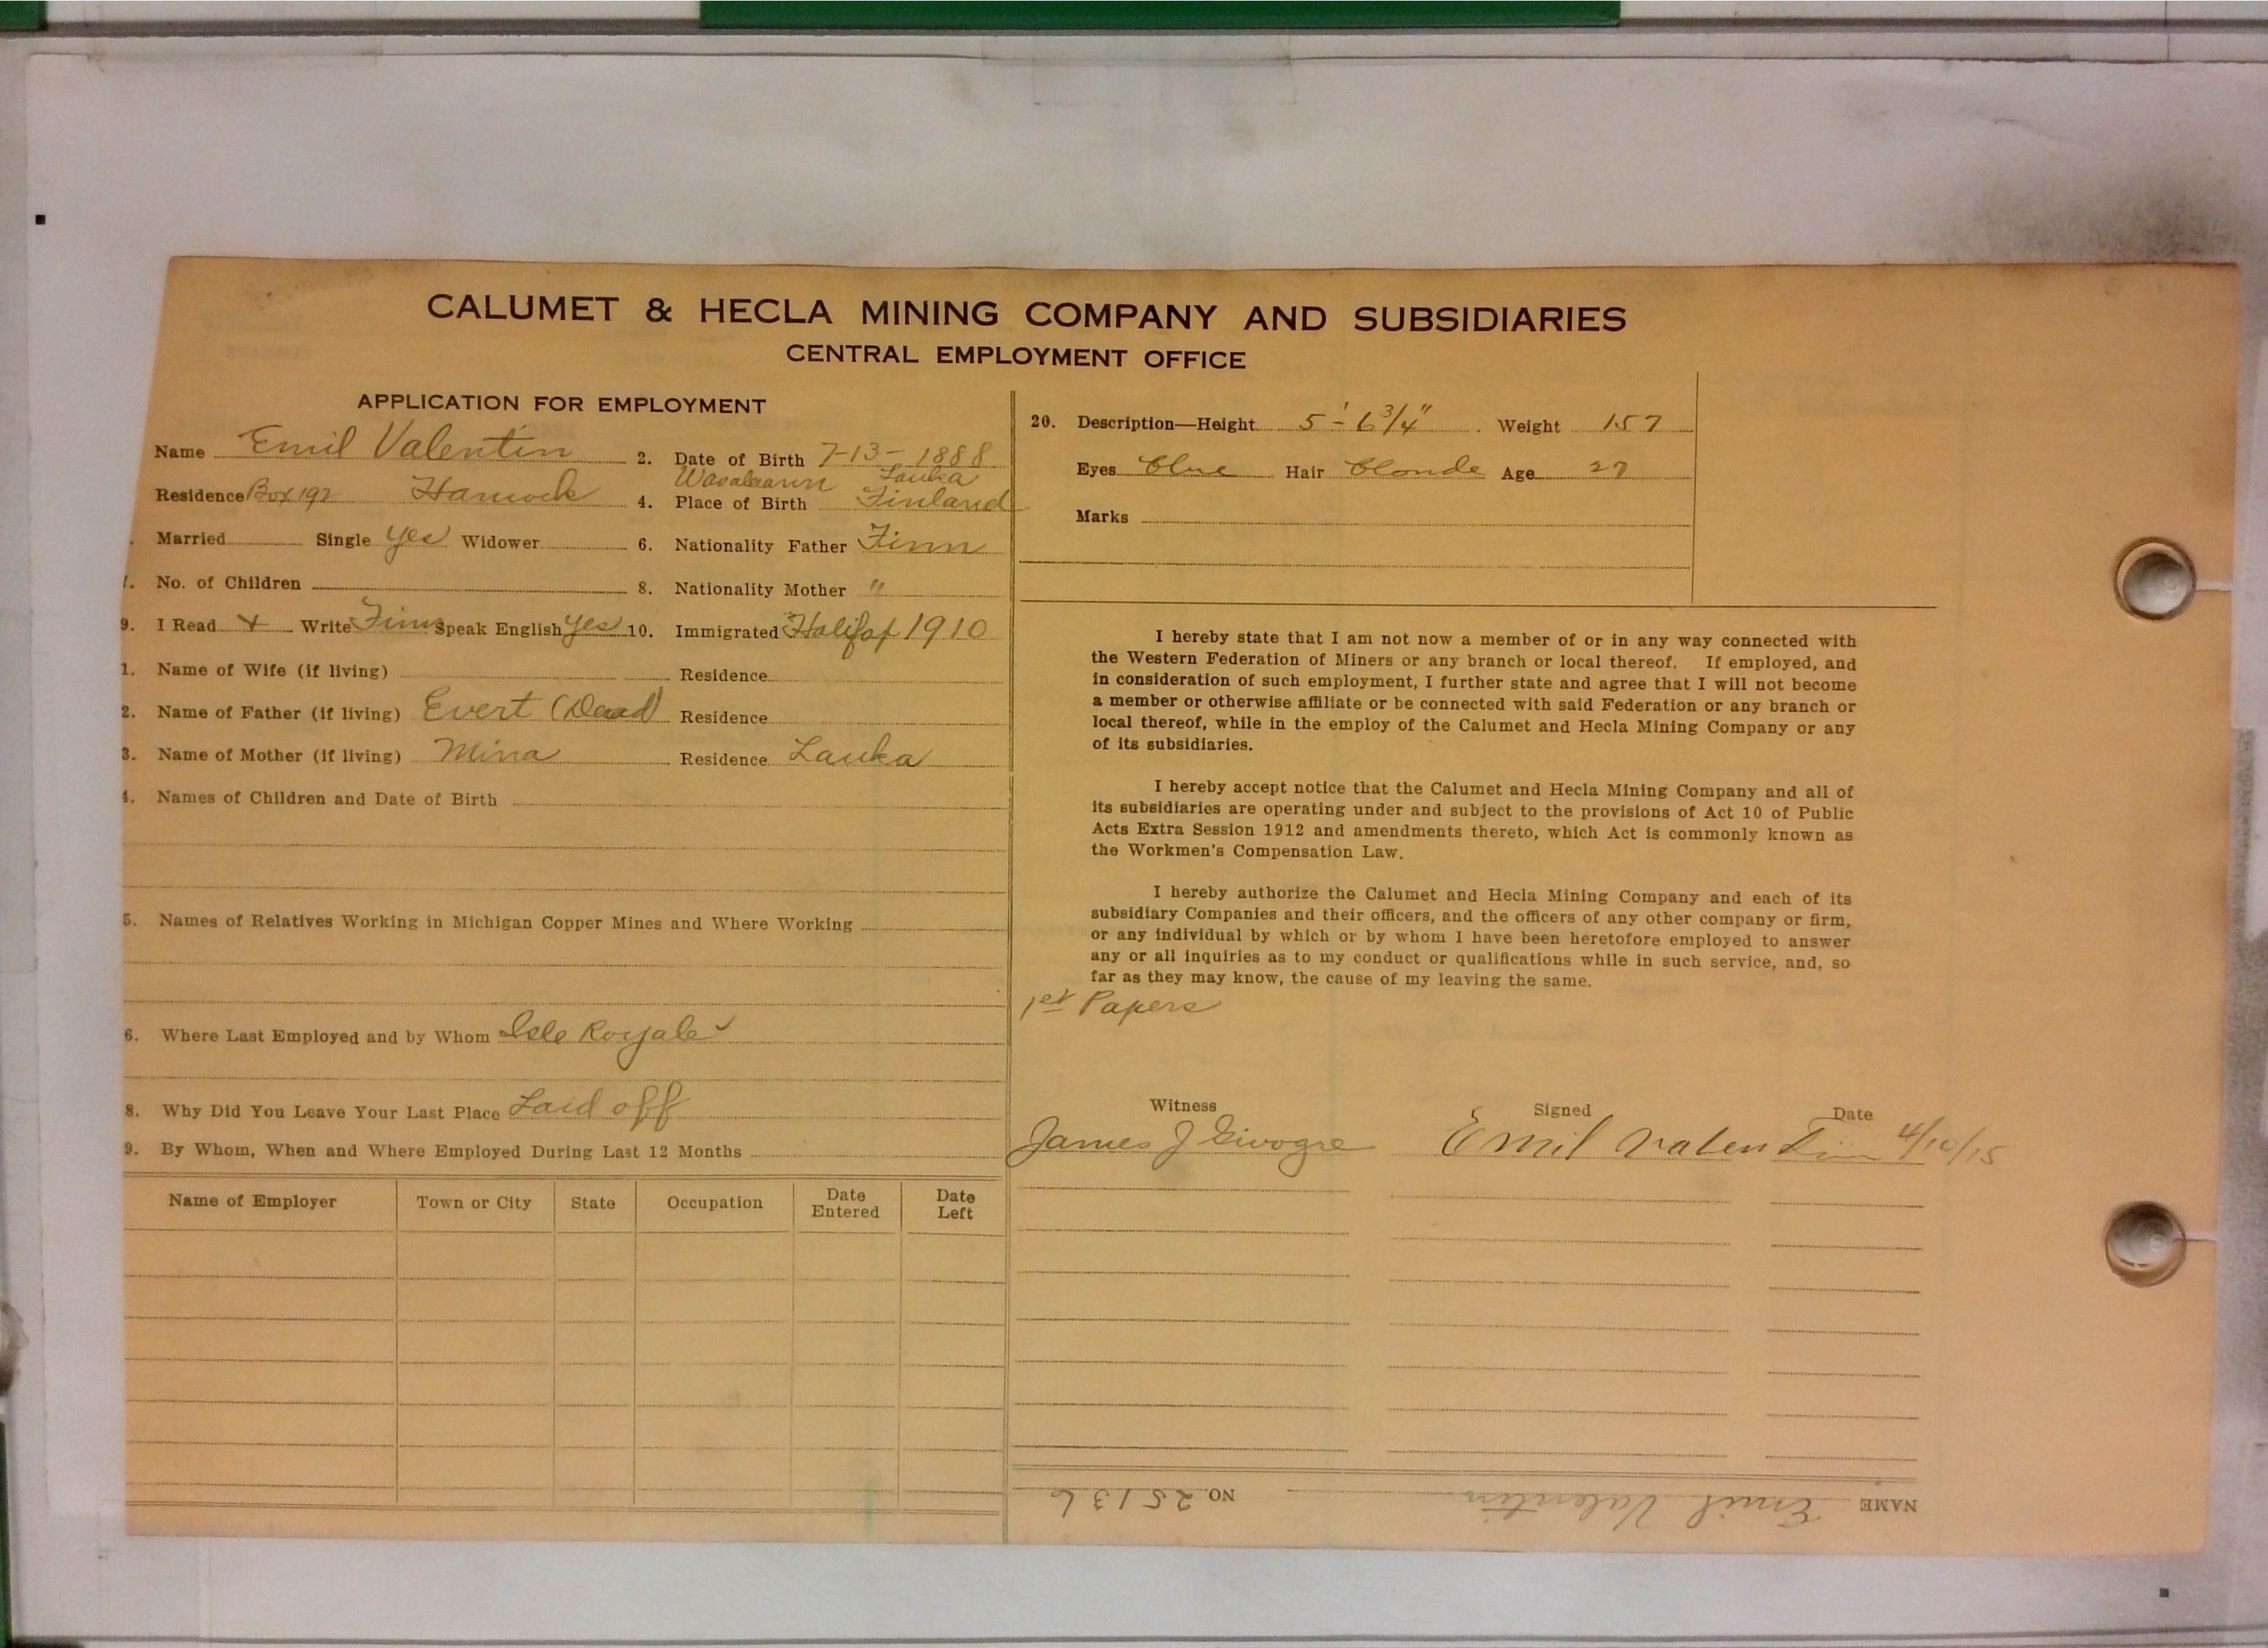 CALUMET & HECLA MINING COMPANY AND SUBSIDIARIES
CENTRAL EMPLOYMENT OFFICE
APPLICATION FOR EMPLOYMENT
Name Emil Valentin
2. Date of Birth 7-13-1888
Residence Box 192 Hancock
Lauka
4. Place of Birth Finland
Married Single yes Widower
6. Nationality Father Finn
7. No. of Children
8. Nationality Mother "
9. I Read + Write Finn Speak English yes
10. Immigrated Halifax 1910
1. Name of Wife (if living) Residence
2. Name of Father (if living) Evert (Dead) Residence
3. Name of Mother (if living) Mina Residence Lauka
4. Names of Children and Date of Birth
5. Names of Relatives Working in Michigan Copper Mines and Where Working
6. Where Last Employed and by Whom Isle Royale ✓
8. Why Did You Leave Your Last Place Laid off
9. By Whom, When and Where Employed During Last 12 Months
Name of Employer Town or City State Occupation Date Entered Date Left
20. Description—Height 5'-6 3/4" Weight 157
Eyes blue Hair blonde Age 27
Marks
I hereby state that I am not now a member of or in any way connected with
the Western Federation of Miners or any branch or local thereof. If employed, and
in consideration of such employment, I further state and agree that I will not become
a member or otherwise affiliate or be connected with said Federation or any branch or
local thereof, while in the employ of the Calumet and Hecla Mining Company or any
of its subsidiaries.
I hereby accept notice that the Calumet and Hecla Mining Company and all of
its subsidiaries are operating under and subject to the provisions of Act 10 of Public
Acts Extra Session 1912 and amendments thereto, which Act is commonly known as
the Workmen's Compensation Law.
I hereby authorize the Calumet and Hecla Mining Company and each of its
subsidiary Companies and their officers, and the officers of any other company or firm,
or any individual by which or by whom I have been heretofore employed to answer
any or all inquiries as to my conduct or qualifications while in such service, and, so
far as they may know, the cause of my leaving the same.
1st Papers
Witness Signed Date
James J Emil Valentin 4/10/15
NAME Emil Valentin NO. 25136